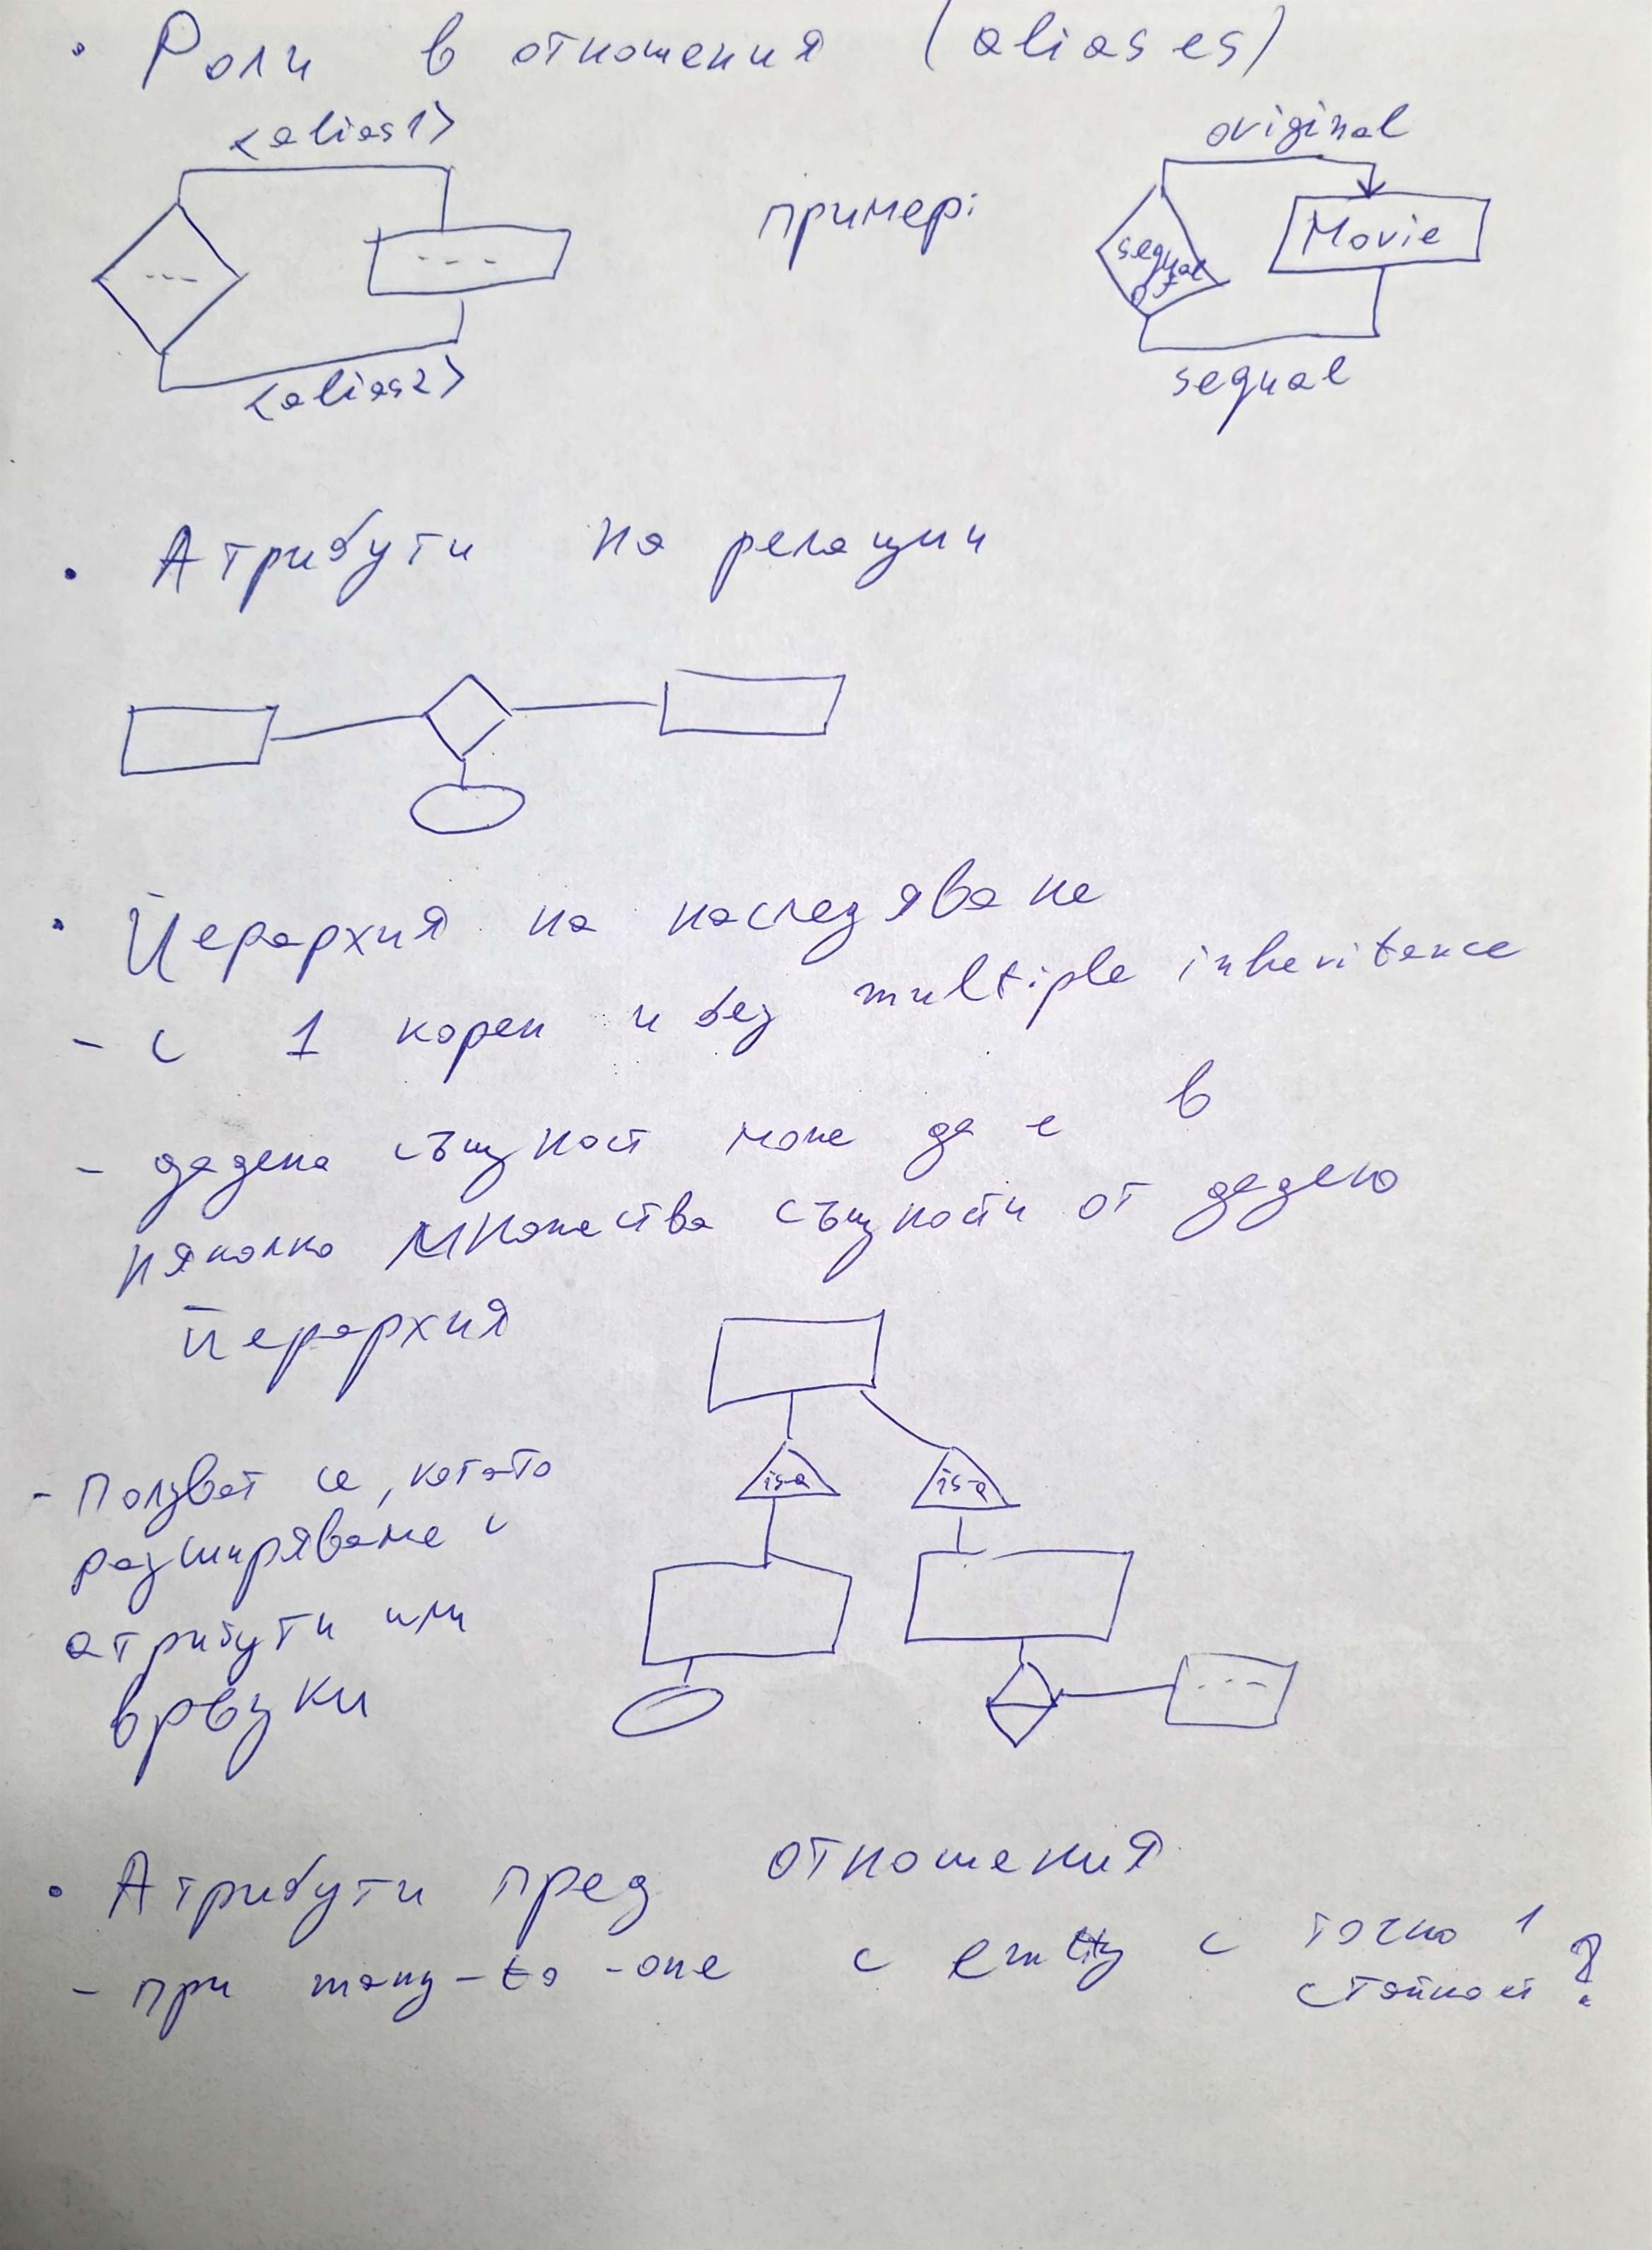 • Роли в отношения (aliases)
<alias1>
original
---
---
пример:
sequal
of
Movie
<alias2>
sequal
• Атрибути на релации
• Йерархия на наследяване
- с 1 корен и без multiple inheritence
- дадена същност може да е в
няколко множества същности от дадена
йерархия
- Ползват се, когато
разширяваме с
атрибути или
връзки
is-a
is-a
---
• Атрибути пред отношения
- при many-to-one с entity с точно 1
стойност ?